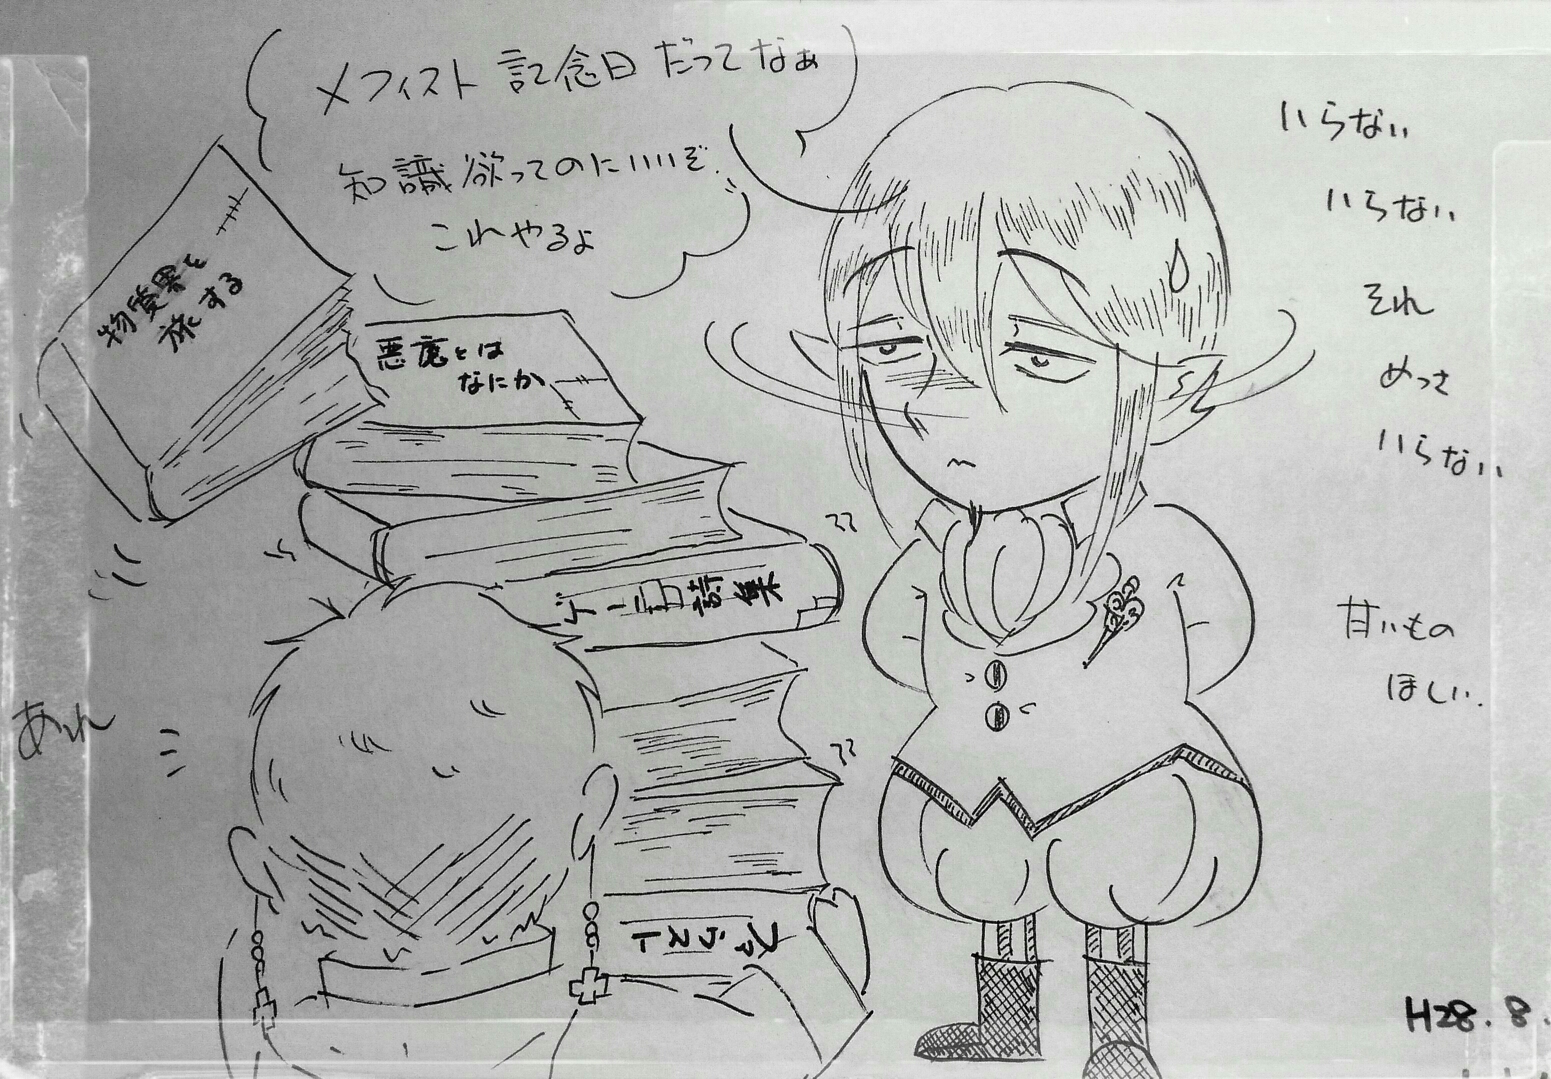 メフィスト 記念日 だってなぁ
知識欲ってのにいいぞ
これやるよ
いらない
いらない
それ
めっさ
いらない
甘いもの
ほしい
物質界を
旅する
悪魔とは
なにか
ゲーテ詩集
ファウスト
あれ
H28.8.